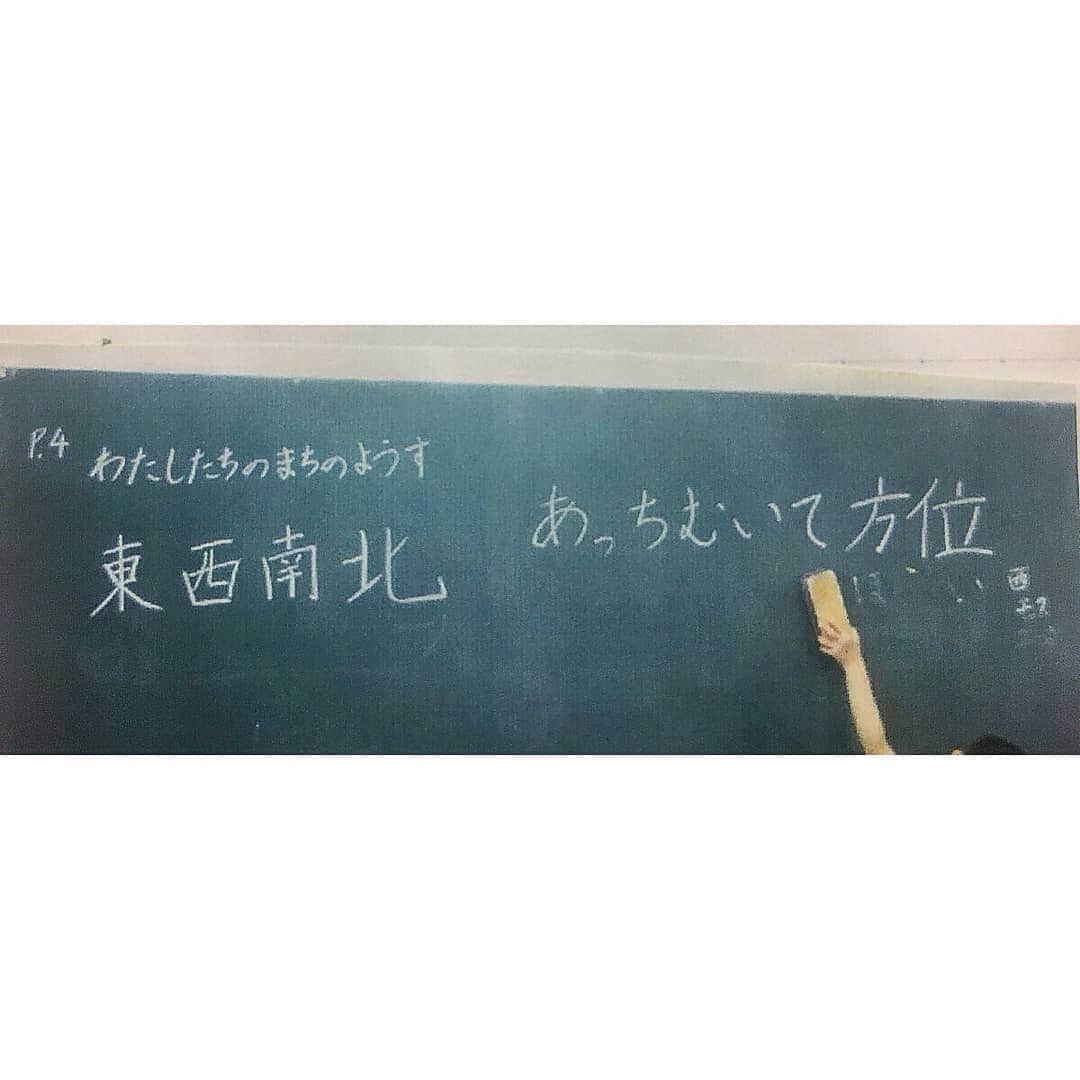 P.4 わたしたちのまちのようす
東西南北
あっちむいて方位
ほうい
西